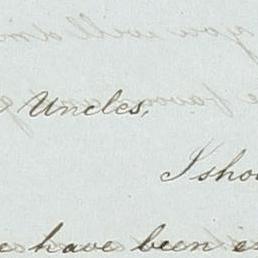 Uncles,
I shou
e have been e